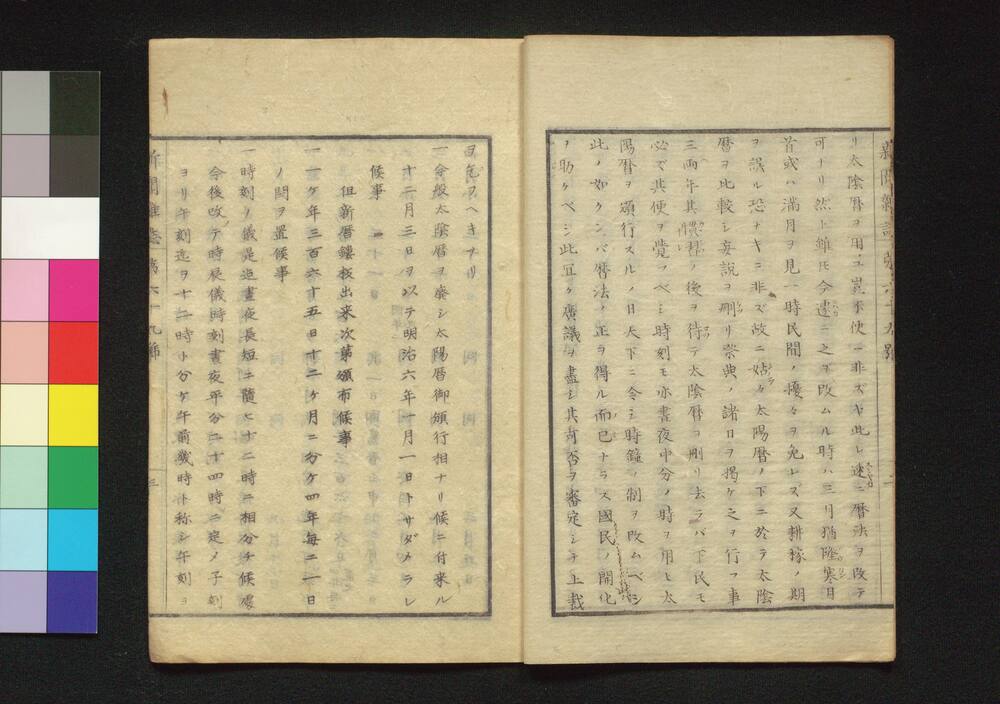 新聞雜誌第六十九號
リ太陰暦ヲ用ユ豈不便ニ非ズヤ此レ速ニ暦法ヲ改テ
可ナリ然ト雖𪜈今遽ニ之ヲ改ムル時ハ三月猶隆寒日
首或ハ満月ヲ見一時民間ノ擾々ヲ免レズ又耕稼ノ期
ヲ誤ル恐ナキニ非ズ故ニ姑ク太陽暦ノ下ニ於テ太陰
暦ヲ比較シ妄説ヲ刪リ祭典ノ諸日ヲ掲ケ之ヲ行フ事
三両年其慣習ノ後ヲ待テ太陰暦ヲ刪リ去ラバ下民モ
必ズ其便ヲ覚フベシ時刻モ亦晝夜中分ノ時ヲ用ヒ太
陽暦ヲ頒行スルノ日天下ニ令シ時鐘ノ制ヲ改ムベシ
此ノ如クンバ暦法ノ正ヲ得ル而已ナラス國民ノ開化
ヲ助クベシ此宜ク廣議ヲ盡シ其可否ヲ審定シテ上裁
ヲ乞フヘキナリ
一今般太陰暦ヲ廃シ太陽暦御頒行相ナリ候ニ付来ル
十二月三日ヲ以テ明治六年一月一日トサダメラレ
候事
但新暦鏤板出来次第頒布候事
一一ケ年三百六十五日十二ケ月ニ分ケ四年毎ニ一日
ノ閏ヲ置候事
一時刻ノ儀是迄晝夜長短ニ隨ヒ十二時ニ相分チ候處
今後改テ時辰儀時刻晝夜平分二十四時ニ定メ子刻
ヨリ午刻迄ヲ十二時ト分ケ午前幾時ト称シ午刻ヨ
新聞雜誌 第六十九號
三